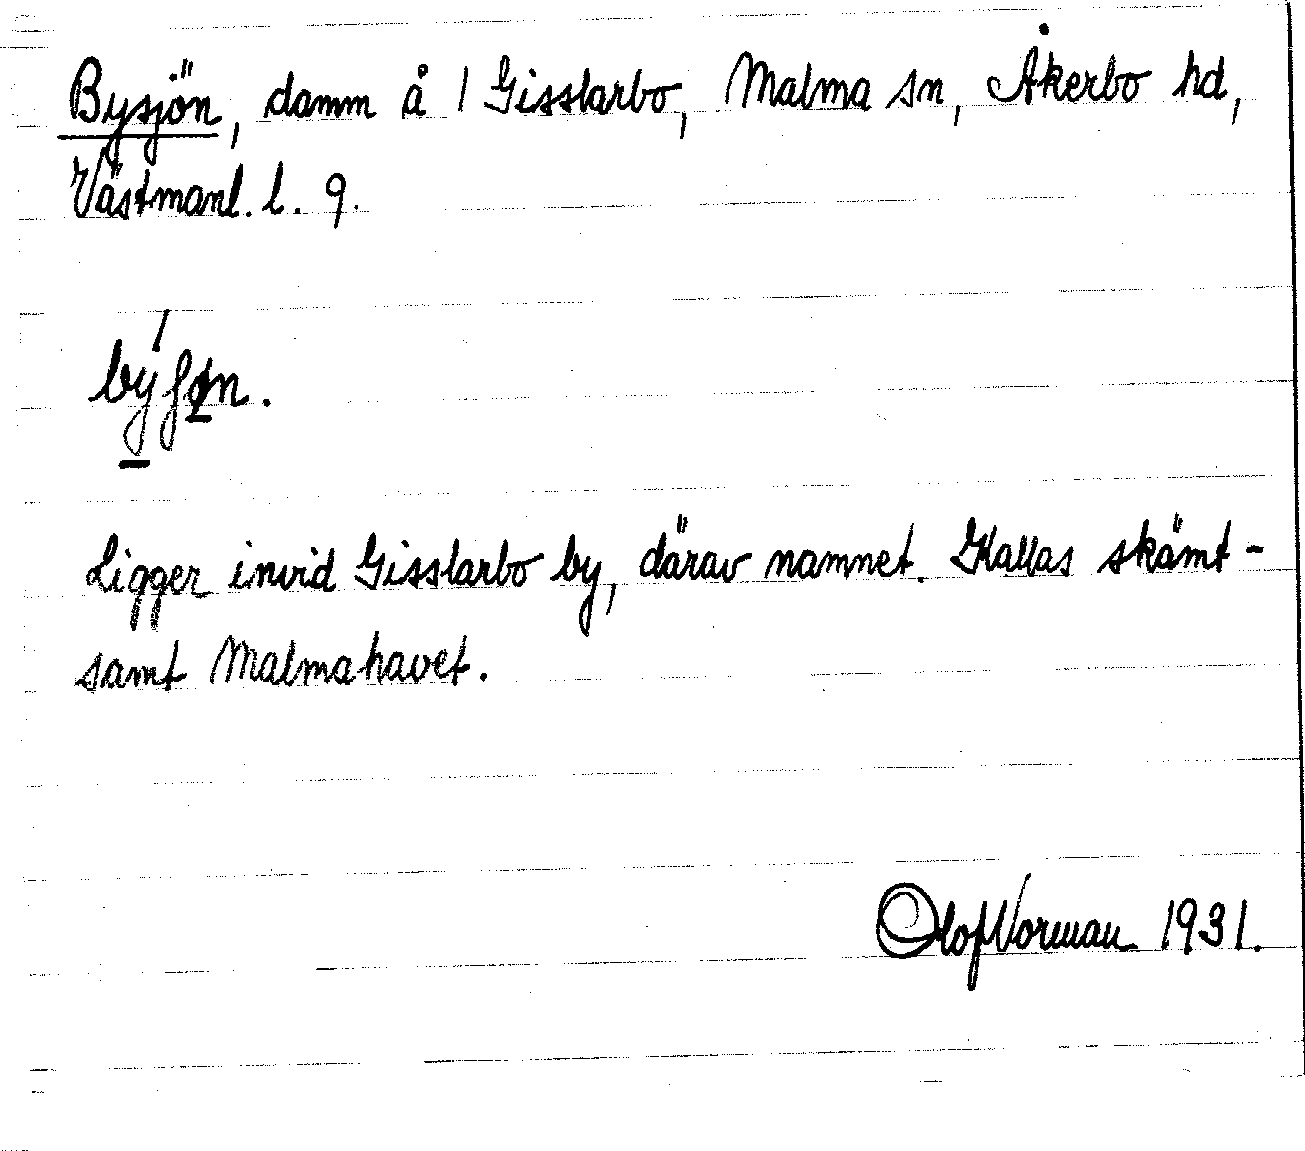 Bysjön, damm å 1 Gisslarbo, Malma sn, Åkerbo hd,
Västmanl. l. 9.
býʃøn.
Ligger invid Gisslarbo by, därav namnet. Kallas skämt-
samt Malmahavet.
Olof Norman 1931.